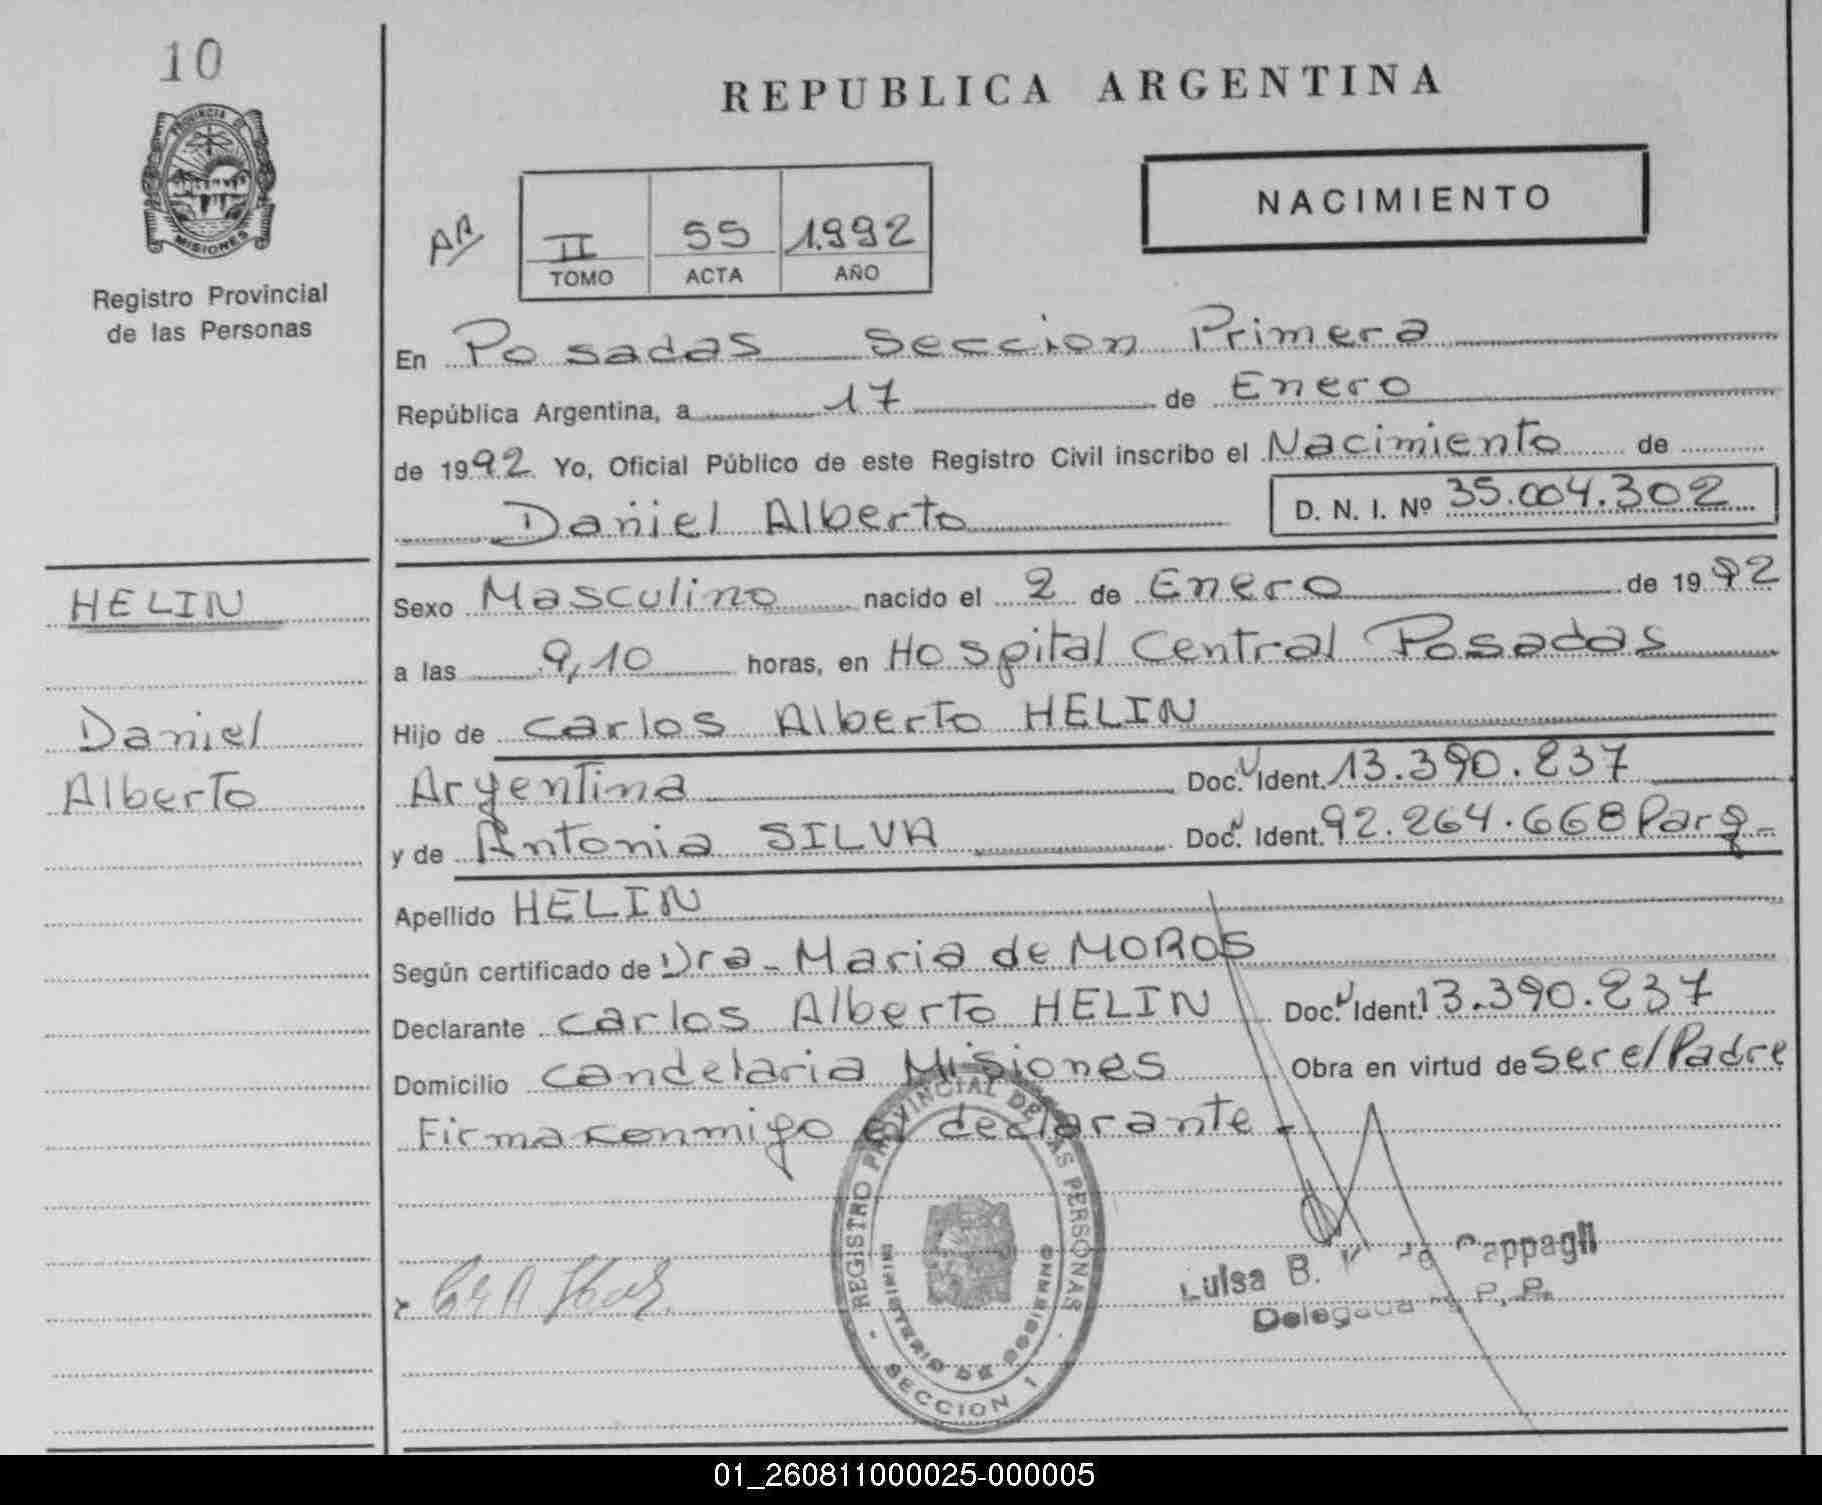 10
PROVINCIA DE
MISIONES
Registro Provincial
de las Personas
REPUBLICA ARGENTINA
NACIMIENTO
II 55 1.992
TOMO ACTA AÑO
En Posadas Seccion Primera
República Argentina, a 17 de Enero
de 1992 Yo, Oficial Público de este Registro Civil inscribo el Nacimiento de
Daniel Alberto D. N. I. Nº 35.004.302
HELIN
Sexo Masculino nacido el 2 de Enero de 1992
a las 9,10 horas, en Hospital Central Posadas
Daniel
Hijo de Carlos Alberto HELIN
Alberto
Argentina Doc. Ident. 13.390.237
y de Antonia SILVA Doc. Ident. 92.264.668 Parg-
Apellido HELIN
Según certificado de Dra- Maria de MOROS
Declarante Carlos Alberto HELIN Doc. Ident. 13.390.237
Domicilio Candelaria Misiones Obra en virtud de ser el Padre
Firma conmigo el declarante-
REGISTRO PROVINCIAL DE LAS PERSONAS
MINISTERIO DE GOBIERNO
- SECCION 1 -
Luisa B. de Cappagli
Delegada R. P. P.
01_260811000025-000005